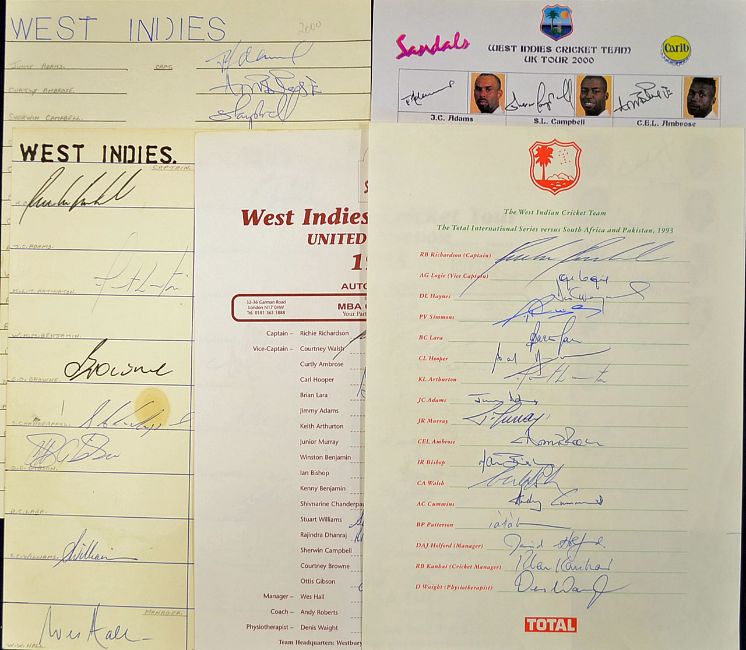 WEST INDIES
2000
JIMMY ADAMS CAPT.
CURTLY AMBROSE
SHERWIN CAMPBELL
Sandals
WEST INDIES CRICKET TEAM
UK TOUR 2000
Carib
J.C. Adams
S.L. Campbell
C.E.L. Ambrose
WEST INDIES.
CAPTAIN.
J.C. ADAMS.
K.L.T. ARTHURTON
W.K.M. BENJAMIN.
C.O. BROWNE.
Browne
S. CHANDERPAUL
O.D. GIBSON.
B.C. LARA.
S.C. WILLIAMS.
Williams
MANAGER.
Wes Hall
W.W. HALL.
West Indies
UNITED
1
AUTO
32-36 Garman Road
London N17 0HW
Tel. 0181 363 1888
MBA
Your Par
Captain – Richie Richardson
Vice-Captain – Courtney Walsh
Curtly Ambrose
Carl Hooper
Brian Lara
Jimmy Adams
Keith Arthurton
Junior Murray
Winston Benjamin
Ian Bishop
Kenny Benjamin
Shivnarine Chanderpau
Stuart Williams
Rajindra Dhanraj
Sherwin Campbell
Courtney Browne
Ottis Gibson
Manager – Wes Hall
Coach – Andy Roberts
Physiotherapist – Denis Waight
Team Headquarters: Westbury
The West Indian Cricket Team
The Total International Series versus South Africa and Pakistan, 1993
RB Richardson (Captain)
AG Logie (Vice Captain) Gus Logie
DL Haynes
PV Simmons
BC Lara
CL Hooper
KL Arthurton
JC Adams Jimmy Adams
JR Murray J. Murray
CEL Ambrose
IR Bishop
CA Walsh
AC Cummins Andy Cummins
BP Patterson
DAJ Holford (Manager) David Holford
RB Kanhai (Cricket Manager) Rohan Kanhai
D Waight (Physiotherapist)
TOTAL